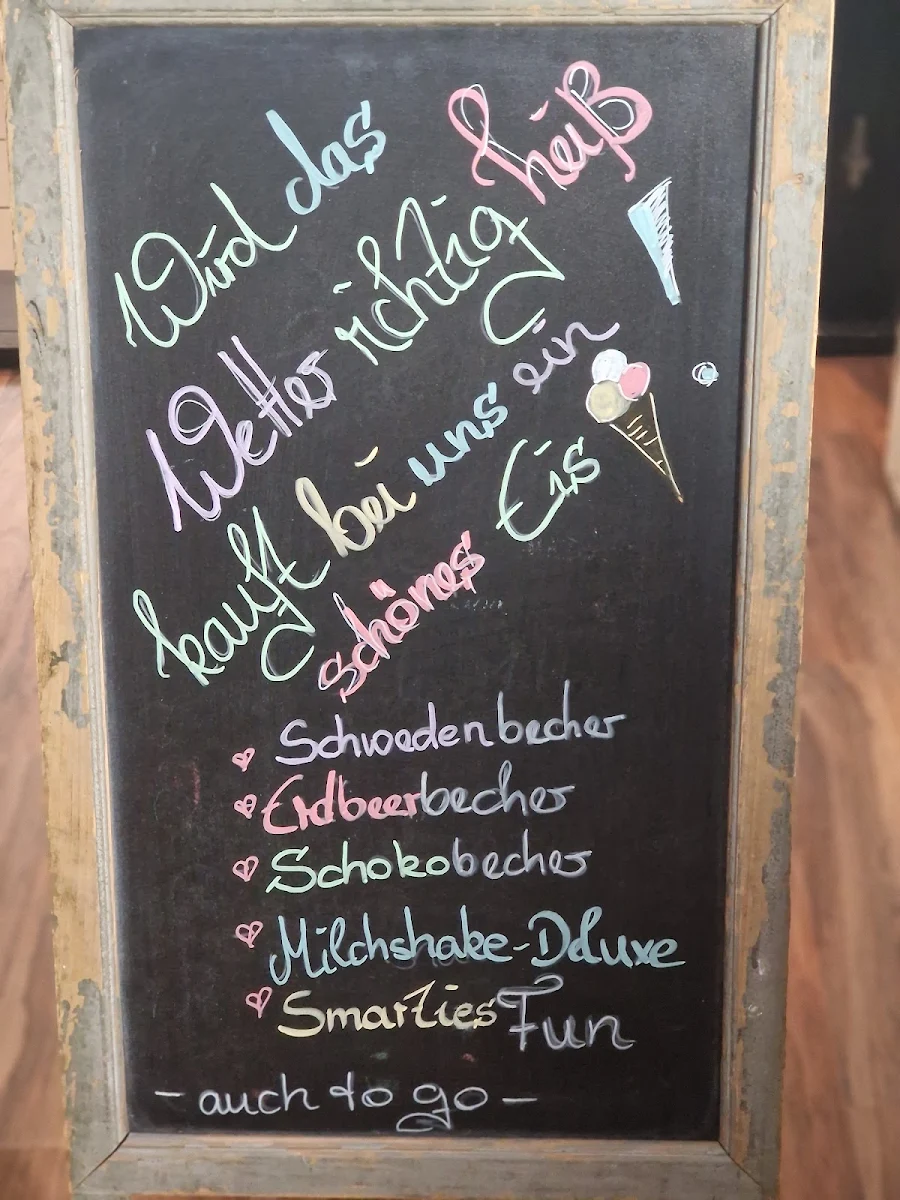 Wird das
Wetter richtig heiß!
kauft bei uns ein
schönes Eis
Schwedenbecher
Erdbeerbecher
Schokobecher
Milchshake-Deluxe
Smarties Fun
- auch to go -